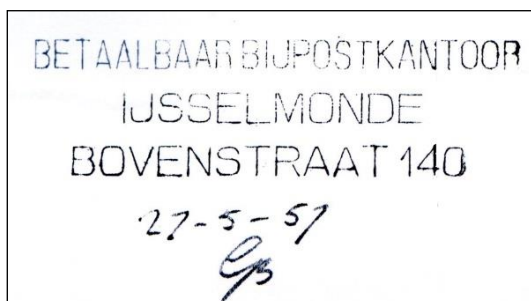 BETAALBAAR BIJPOSTKANTOOR
IJSSELMONDE
BOVENSTRAAT 140
27-5-57